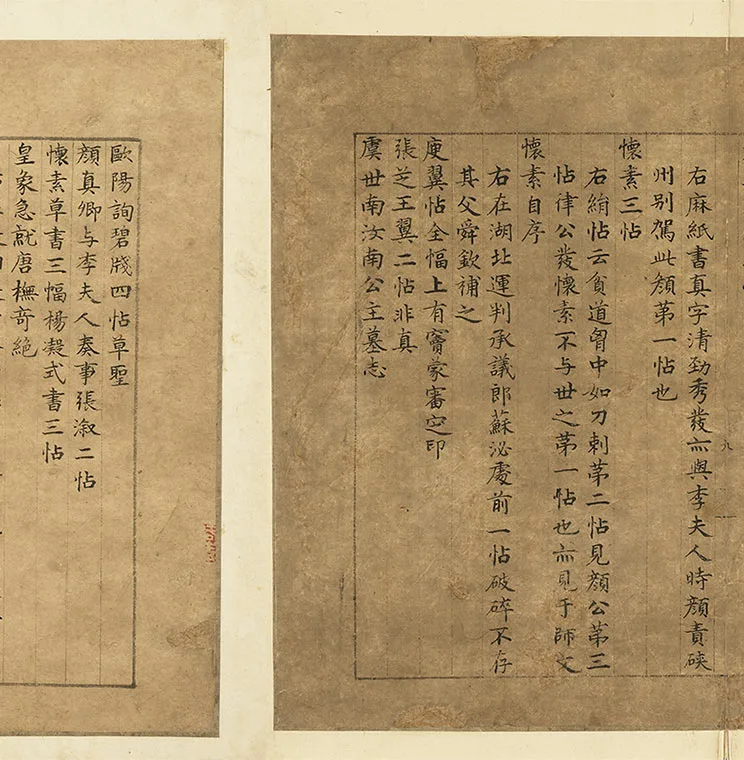 右麻紙書真字清勁秀發亦與李夫人時顏責硤
州别駕此顏苐一帖也
懷素三帖
右絹帖云貧道胷中如刀刺苐二帖見顏公苐三
帖律公發懷素不与世之苐一帖也亦見于師文
懷素自序
右在湖北運判承議郎蘇泌處前一帖破碎不存
其父舜欽補之
庾翼帖全幅上有竇蒙審定印
張芝王翼二帖非真
虞世南汝南公主墓志
歐陽詢碧牋四帖草聖
顏真卿与李夫人奏事張溆二帖
懷素草書三幅楊凝式書三帖
皇象急就唐橅奇絕